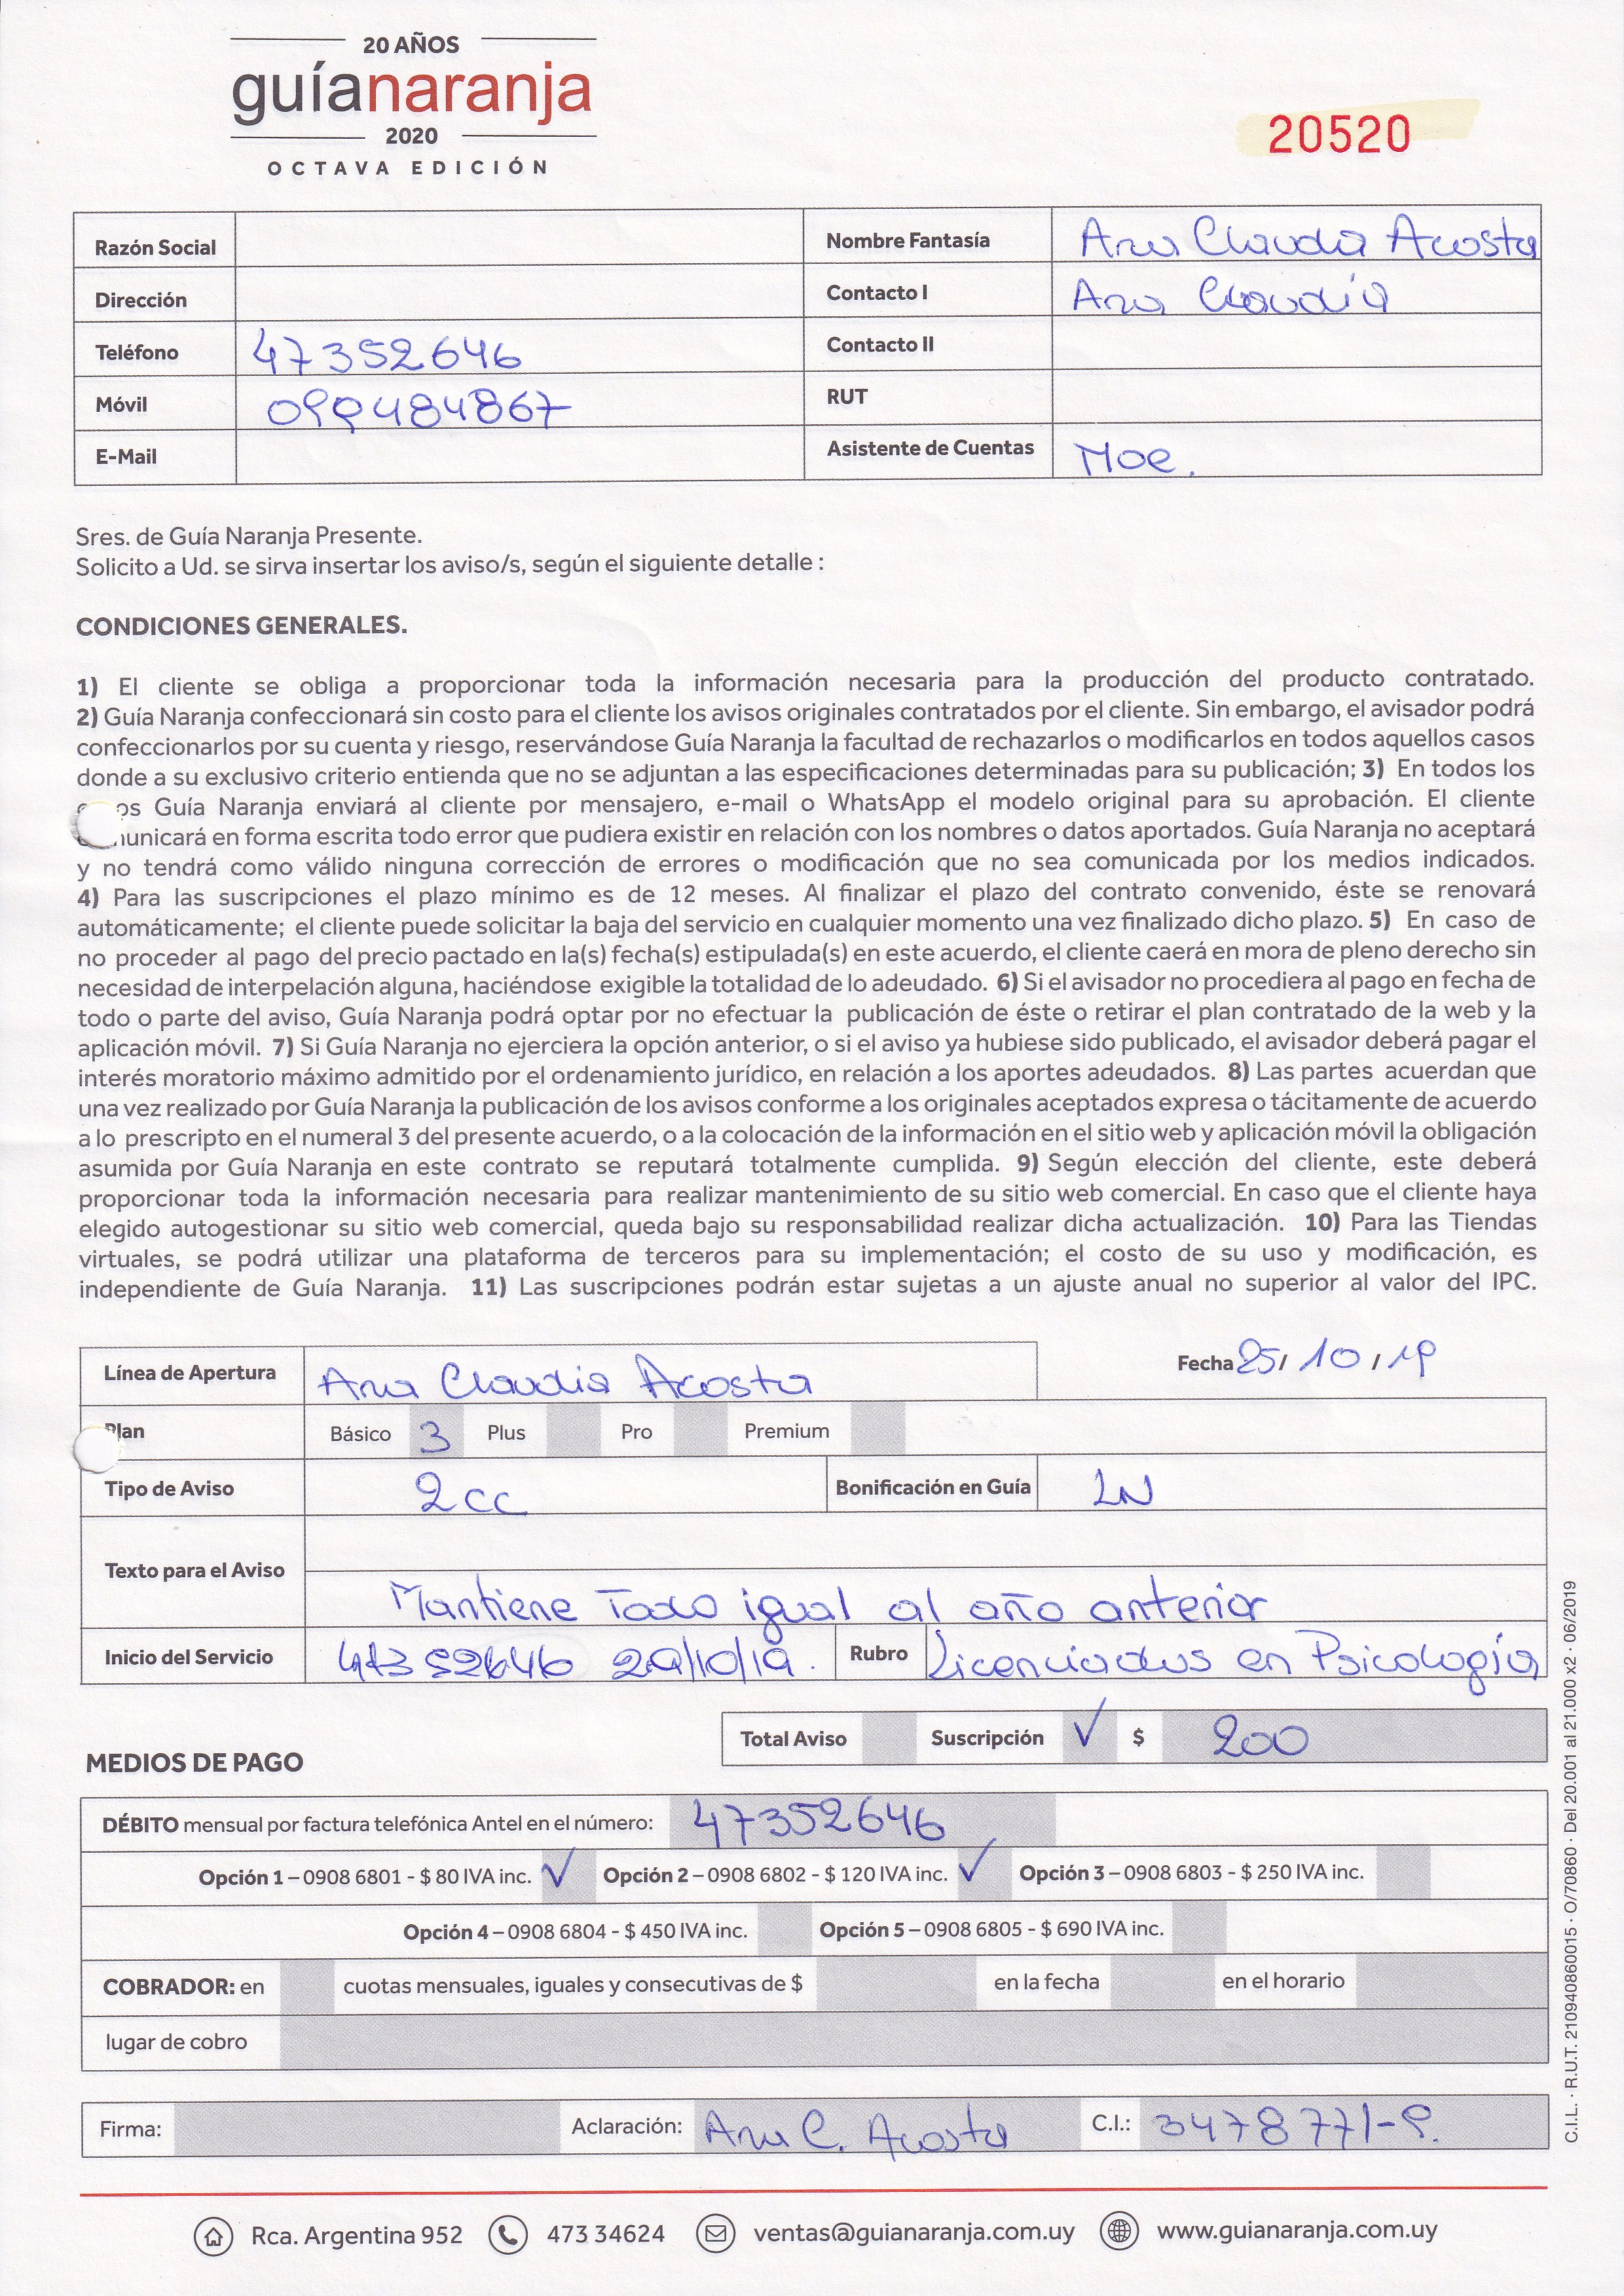 20 AÑOS
guíanaranja
2020
OCTAVA EDICIÓN
20520
Razón Social
Nombre Fantasía Ana Claudia Acosta
Dirección
Contacto I Ana Claudia
Teléfono 47352646
Contacto II
Móvil 099484867
RUT
E-Mail
Asistente de Cuentas Noe.
Sres. de Guía Naranja Presente.
Solicito a Ud. se sirva insertar los aviso/s, según el siguiente detalle :
CONDICIONES GENERALES.
1) El cliente se obliga a proporcionar toda la información necesaria para la producción del producto contratado.
2) Guía Naranja confeccionará sin costo para el cliente los avisos originales contratados por el cliente. Sin embargo, el avisador podrá
confeccionarlos por su cuenta y riesgo, reservándose Guía Naranja la facultad de rechazarlos o modificarlos en todos aquellos casos
donde a su exclusivo criterio entienda que no se adjuntan a las especificaciones determinadas para su publicación; 3) En todos los
Guía Naranja enviará al cliente por mensajero, e-mail o WhatsApp el modelo original para su aprobación. El cliente
en forma escrita todo error que pudiera existir en relación con los nombres o datos aportados. Guía Naranja no aceptará
y no tendrá como válido ninguna corrección de errores o modificación que no sea comunicada por los medios indicados.
4) Para las suscripciones el plazo mínimo es de 12 meses. Al finalizar el plazo del contrato convenido, éste se renovará
automáticamente; el cliente puede solicitar la baja del servicio en cualquier momento una vez finalizado dicho plazo. 5) En caso de
no proceder al pago del precio pactado en la(s) fecha(s) estipulada(s) en este acuerdo, el cliente caerá en mora de pleno derecho sin
necesidad de interpelación alguna, haciéndose exigible la totalidad de lo adeudado. 6) Si el avisador no procediera al pago en fecha de
todo o parte del aviso, Guía Naranja podrá optar por no efectuar la publicación de éste o retirar el plan contratado de la web y la
aplicación móvil. 7) Si Guía Naranja no ejerciera la opción anterior, o si el aviso ya hubiese sido publicado, el avisador deberá pagar el
interés moratorio máximo admitido por el ordenamiento jurídico, en relación a los aportes adeudados. 8) Las partes acuerdan que
una vez realizado por Guía Naranja la publicación de los avisos conforme a los originales aceptados expresa o tácitamente de acuerdo
a lo prescripto en el numeral 3 del presente acuerdo, o a la colocación de la información en el sitio web y aplicación móvil la obligación
asumida por Guía Naranja en este contrato se reputará totalmente cumplida. 9) Según elección del cliente, este deberá
proporcionar toda la información necesaria para realizar mantenimiento de su sitio web comercial. En caso que el cliente haya
elegido autogestionar su sitio web comercial, queda bajo su responsabilidad realizar dicha actualización. 10) Para las Tiendas
virtuales, se podrá utilizar una plataforma de terceros para su implementación; el costo de su uso y modificación, es
independiente de Guía Naranja. 11) Las suscripciones podrán estar sujetas a un ajuste anual no superior al valor del IPC.
Línea de Apertura Ana Claudia Acosta
Fecha 25/ 10 / 19
Plan Básico 3 Plus Pro Premium
Tipo de Aviso 2cc Bonificación en Guía LN
Texto para el Aviso
Mantiene Todo igual al año anterior
Inicio del Servicio 47352646 29/10/19. Rubro Licenciados en Psicología
Total Aviso Suscripción ✓ $ 200
MEDIOS DE PAGO
DÉBITO mensual por factura telefónica Antel en el número: 47352646
Opción 1 – 0908 6801 - $ 80 IVA inc. ✓ Opción 2 – 0908 6802 - $ 120 IVA inc. ✓ Opción 3 – 0908 6803 - $ 250 IVA inc.
Opción 4 – 0908 6804 - $ 450 IVA inc. Opción 5 – 0908 6805 - $ 690 IVA inc.
COBRADOR: en cuotas mensuales, iguales y consecutivas de $ en la fecha en el horario
lugar de cobro
Firma: Aclaración: Ana C. Acosta C.I.: 3478771-9.
Rca. Argentina 952 473 34624 ventas@guianaranja.com.uy www.guianaranja.com.uy
C.I.L. · R.U.T. 210940860015 · O/70860 · Del 20.001 al 21.000 x2 · 06/2019